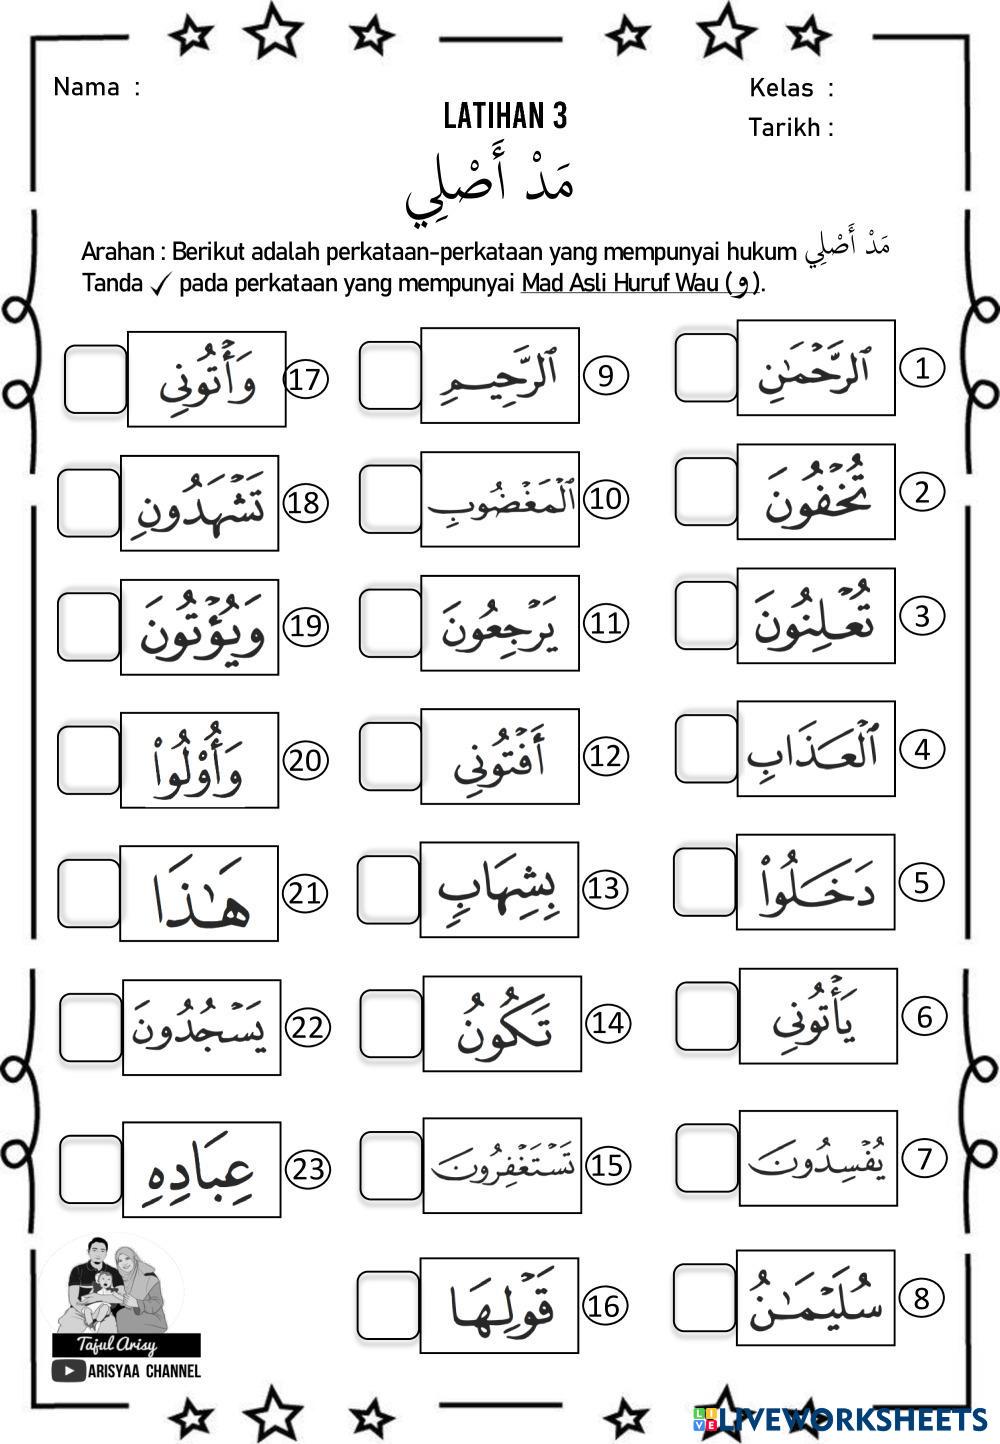 Nama :
Kelas :
LATIHAN 3
Tarikh :
مَدْ أَصْلِي
Arahan : Berikut adalah perkataan-perkataan yang mempunyai hukum مَدْ أَصْلِي
Tanda ✓ pada perkataan yang mempunyai Mad Asli Huruf Wau (و).
1 ٱلرَّحۡمَـٰنِ
9 ٱلرَّحِيمِ
17 وَأۡتُونِى
2 تُخۡفُونَ
10 ٱلۡمَغۡضُوبِ
18 تَشۡهَدُونِ
3 تُعۡلِنُونَ
11 يَرۡجِعُونَ
19 وَيُؤۡتُونَ
4 ٱلۡعَذَابِ
12 أَفۡتُونِى
20 وَأُوْلُواْ
5 دَخَلُواْ
13 بِشِهَابٍ
21 هَـٰذَا
6 يَأۡتُونِى
14 تَكُونُ
22 يَسۡجُدُونَ
7 يُفۡسِدُونَ
15 تَسۡتَغۡفِرُونَ
23 عِبَادِهِ
8 سُلَيۡمَـٰنُ
16 قَوۡلِهَا
Tajul Arisy
ARISYAA CHANNEL
LIVEWORKSHEETS